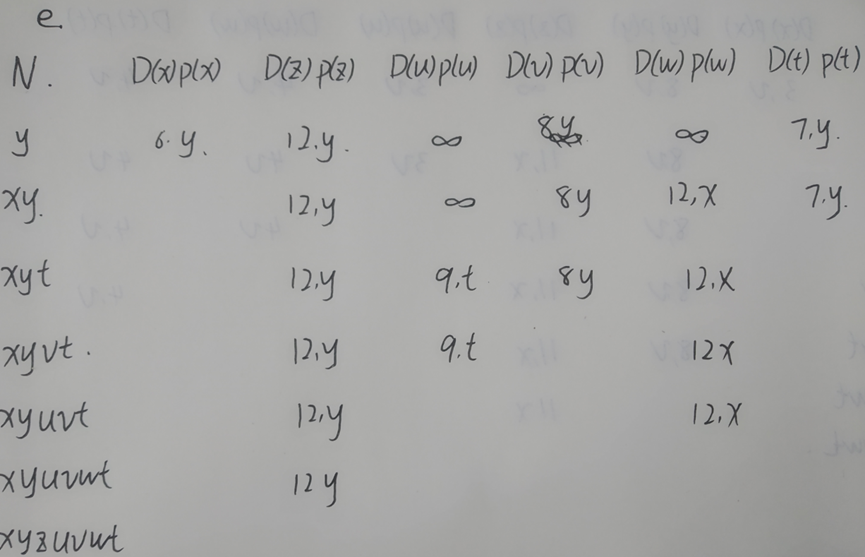 e
N. D(x)p(x) D(z)p(z) D(u)p(u) D(v)p(v) D(w)p(w) D(t)p(t)
y 6.y. 12.y. ∞ 8y ∞ 7,y.
xy. 12,y ∞ 8y 12,x 7,y.
xyt 12,y 9,t 8y 12.x
xyvt. 12,y 9.t 12x
xyuvt 12,y 12,x
xyuvwt 12y
xyzuvwt